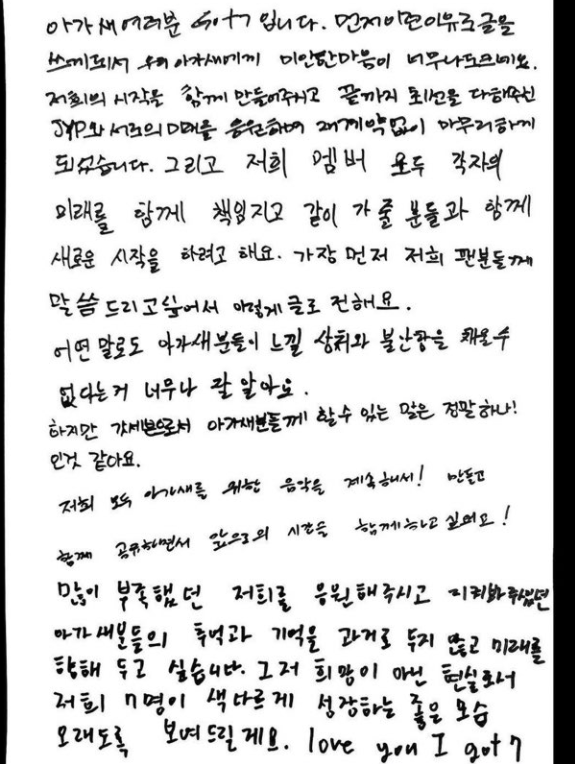 아가새여러분 Got7 입니다. 먼저 이런이유로글을
쓰게되서 우리 아가새에게 미안한마음이 너무나도크네요.
저희의 시작을 함께 만들어주시고 끝까지 최선을 다해주신
JYP와 서로의 미래를 응원하며 재계약없이 마무리하게
되었습니다. 그리고 저희 멤버 모두 각자의
미래를 함께 책임지고 같이 가 줄 분들과 함께
새로운 시작을 하려고 해요. 가장 먼저 저희 팬분들께
말씀 드리고싶어서 이렇게 글로 전해요.
어떤 말로도 아가새분들이 느낄 상처와 불안함을 채울수
없다는거 너무나 잘 알아요.
하지만 갓세븐으로서 아가새분들께 할수 있는 말은 정말하나!
인것 같아요.
저희 모두 아가새를 위한 음악을 계속해서! 만들고
함께 공유하면서 앞으로의 시간을 함께하고싶어요!
많이 부족했던 저희를 응원해주시고 지켜봐주셨던
아가새분들의 추억과 기억을 과거로 두지 않고 미래를
향해 두고 싶습니다. 그저 희망이 아닌 현실로서
저희 7명이 색다르게 성장하는 좋은 모습
오래도록 보여드릴게요. love you I got7